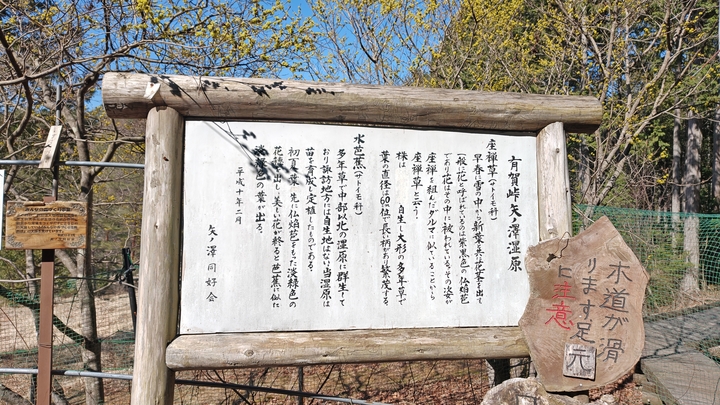 有賀峠矢ノ澤湿原
座禅草(サトイモ科)
早春に雪の中から新葉と共に花茎を出て
一般に花と呼ばれているのは紫黒色の仏焔苞
であり花はその中に被われているその姿が
座禅を組んだダルマに似ていることから
座禅草と云う。
株は 自生し大形の多年草で
葉の直径は60㎝位で長い柄があり繁茂する。
水芭蕉(サトイモ科)
多年草で中部以北の湿原に群生して
おり諏訪地方には自生地はない当湿原は
苗を育成し定植したものである。
初夏葉に先に仏焔苞をまとった淡緑色の
花穂を出し、美しい花が終ると芭蕉に似た
淡緑色の葉が出る。
平成十年二月
矢ノ澤同好会
木道が滑
ります足元
に注意